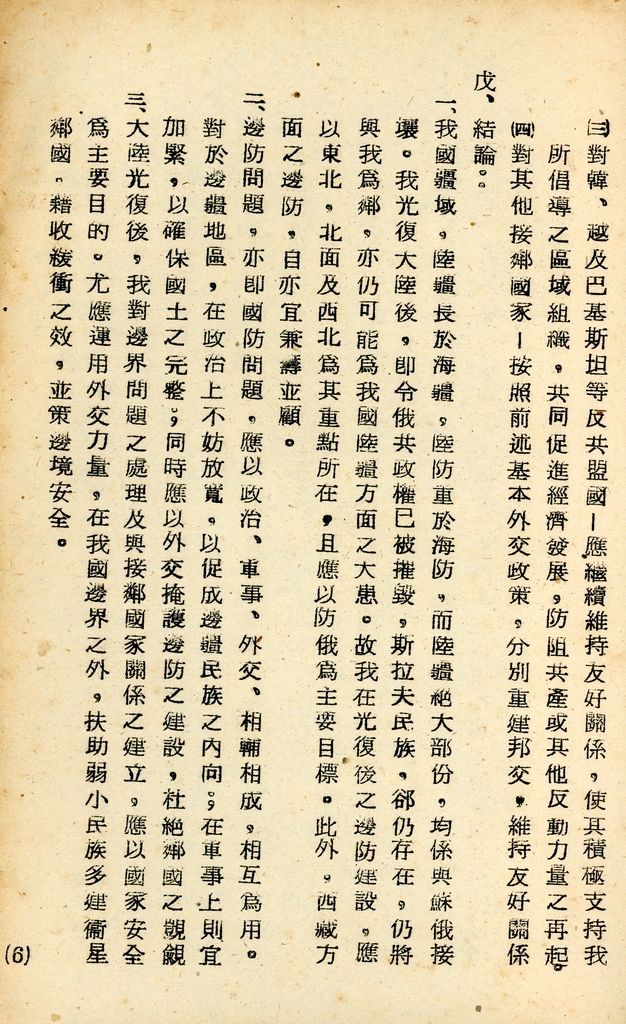 ㈢對韓、越及巴基斯坦等反共盟國—應繼續維持友好關係，使其積極支持我
所倡導之區域組織，共同促進經濟發展，防阻共產或其他反動力量之再起。
㈣對其他接鄰國家—按照前述基本外交政策，分別重建邦交，維持友好關係
戊、結論。
一、我國疆域，陸疆長於海疆，陸防重於海防，而陸疆絕大部份，均係與蘇俄接
壤。我光復大陸後，卽令俄共政權已被摧毀，斯拉夫民族，卻仍存在，仍將
與我爲鄰，亦仍可能爲我國陸疆方面之大患。故我在光復後之邊防建設，應
以東北，北面及西北爲其重點所在，且應以防俄爲主要目標。此外，西藏方
面之邊防，自亦宜兼籌並顧。
二、邊防問題，亦卽國防問題，應以政治、軍事、外交、相輔相成，相互爲用。
對於邊疆地區，在政治上不妨放寬，以促成邊疆民族之內向；在軍事上則宜
加緊，以確保國土之完整；同時應以外交掩護邊防之建設，杜絕鄰國之覬覦
三、大陸光復後，我對邊界問題之處理及與接鄰國家關係之建立，應以國家安全
爲主要目的。尤應運用外交力量，在我國邊界之外，扶助弱小民族多建衞星
鄰國，藉收緩衝之效，並策邊境安全。
(6)